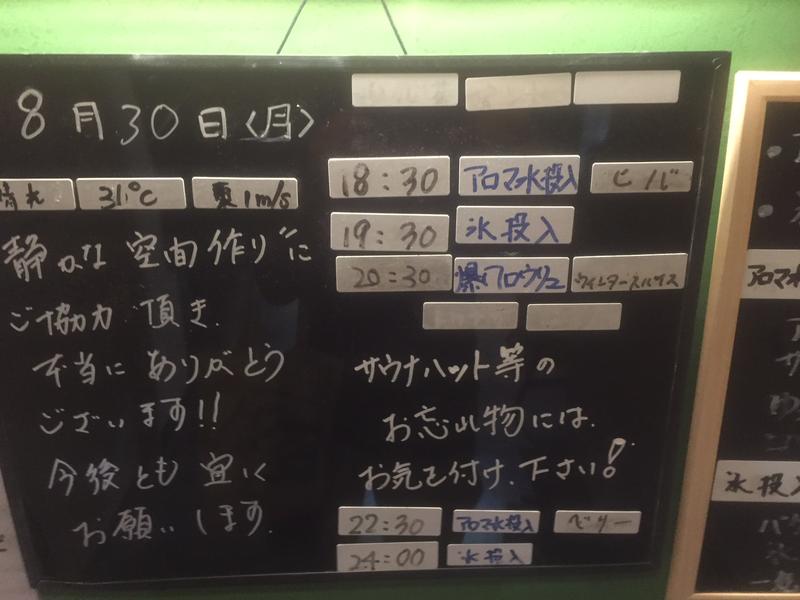 8月30日〈月〉
晴れ 31℃ 東1m/s
静かな空間作りに
ご協力 頂き
本当に ありがとう
ございます!!
今後とも 宜しく
お願いします
18:30 アロマ水投入 ヒバ
19:30 氷投入
20:30 爆アロウリュ ウィンタースパイス
サウナハット等の
お忘れ物には
お気を付け下さい!
22:30 アロマ水投入 ベリー
24:00 氷投入
アロマ水
氷投入